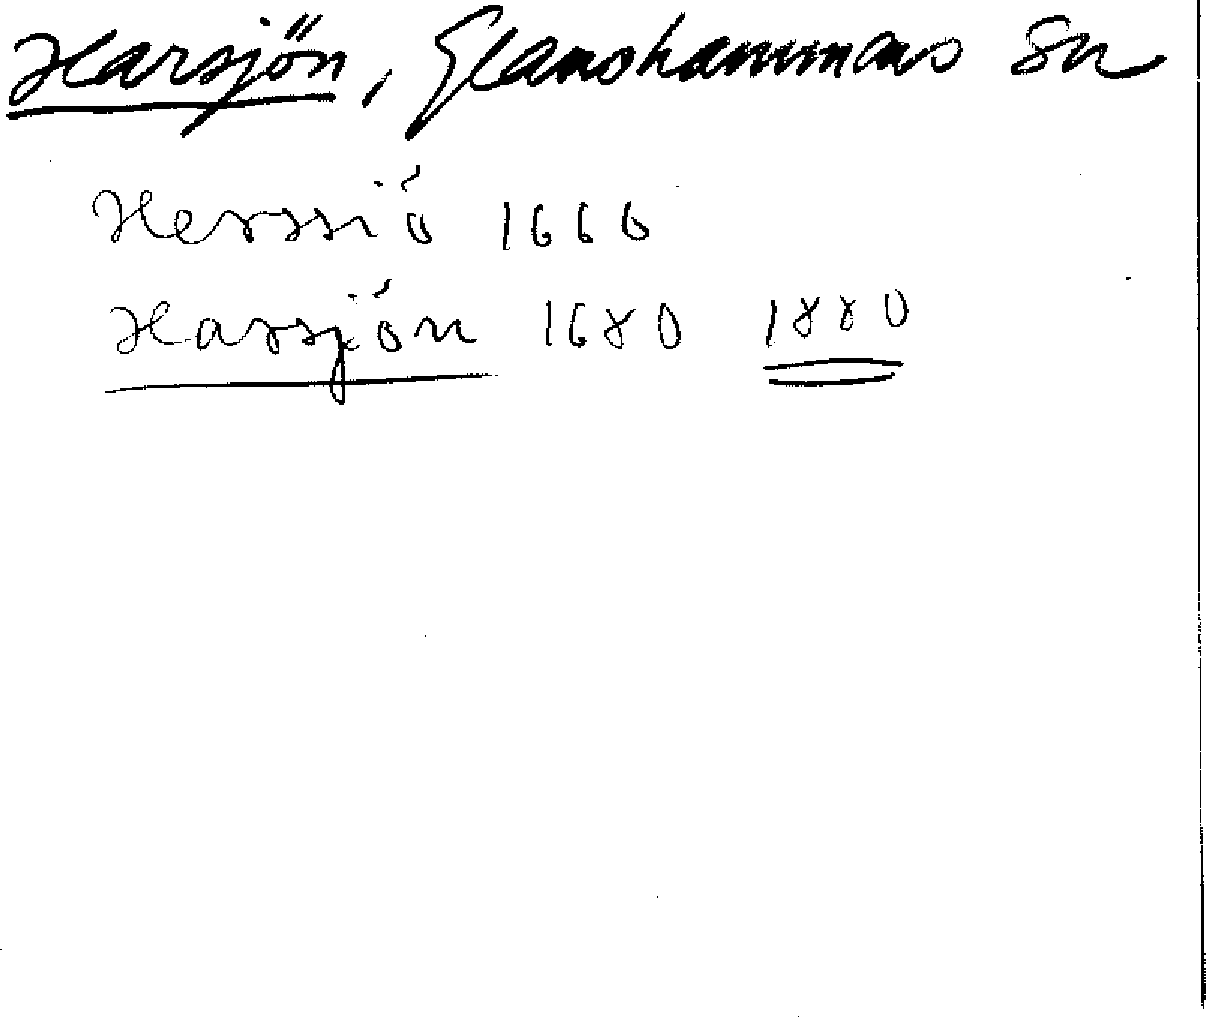 Harsjön, Glanshammars sn
Herssiö 1666
Harsjön 1680 1880